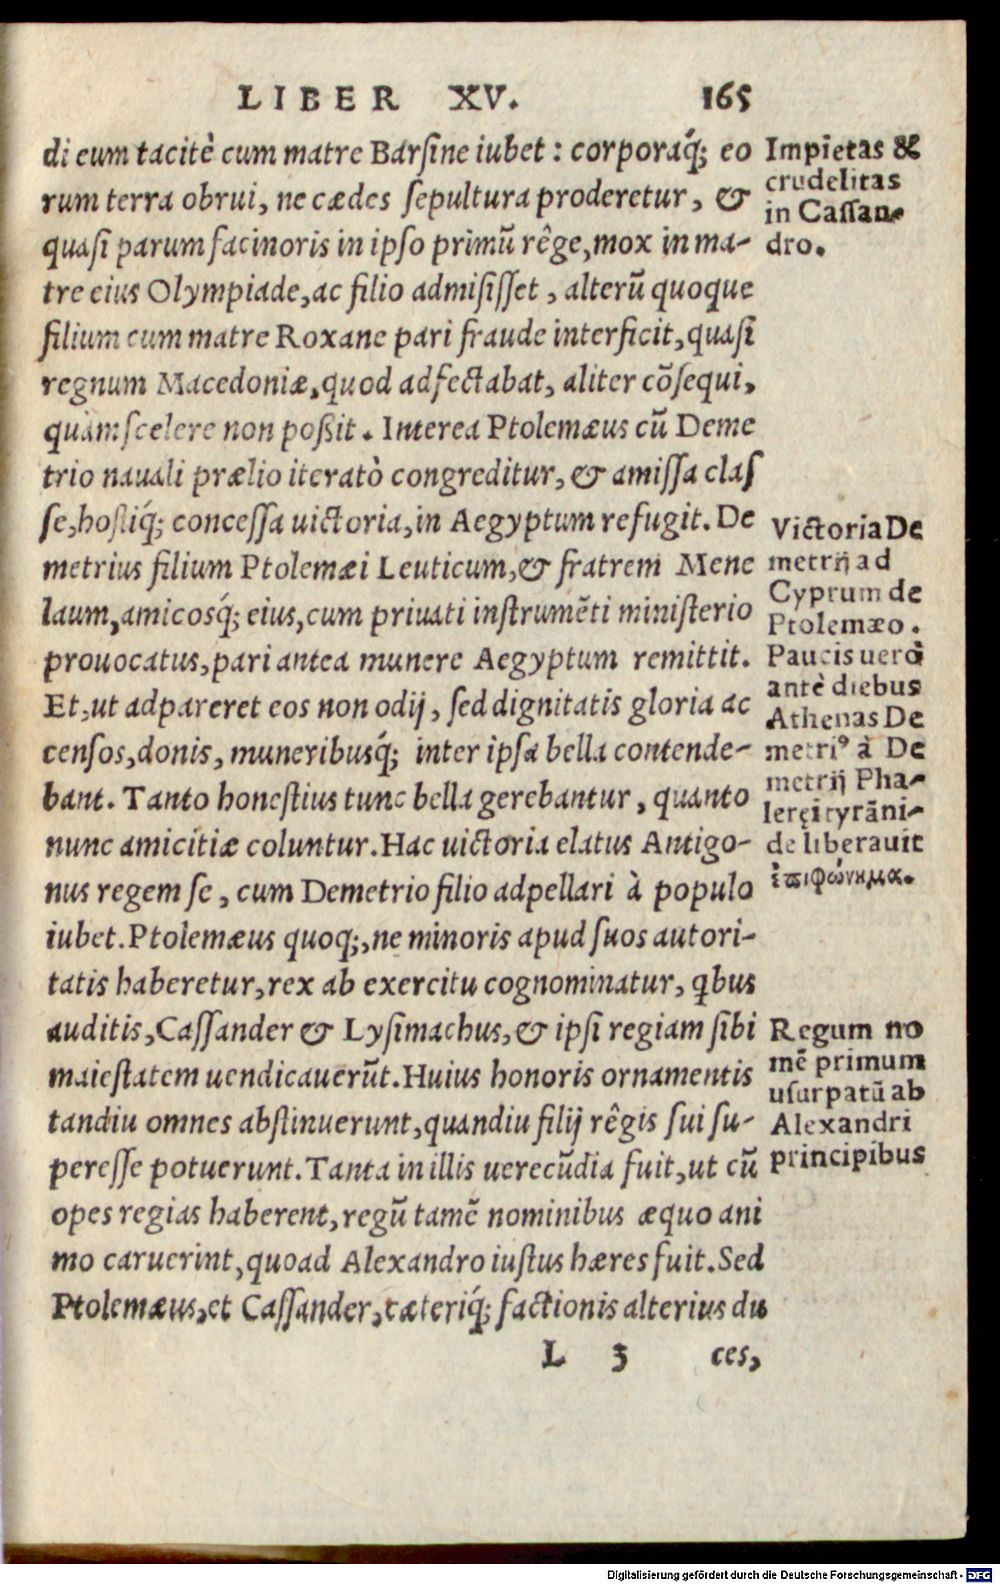 LIBER XV. 165
di eum tacitè cum matre Barſine iubet : corporaq́; eo
rum terra obrui, ne cædes ſepultura proderetur, &
quaſi parum facinoris in ipſo primũ rêge, mox in ma-
tre eius Olympiade, ac filio admiſiſſet, alterũ quoque
filium cum matre Roxane pari fraude interficit, quaſi
regnum Macedoniæ, quod adfectabat, aliter cõſequi,
quàm ſcelere non poßit. Interea Ptolemæus cũ Deme
trio nauali prælio iteratò congreditur, & amiſſa claſ
ſe, hoſtiq́; conceſſa uictoria, in Aegyptum refugit. De
metrius filium Ptolemæi Leuticum, & fratrem Mene
laum, amicosq́; eius, cum priuati inſtrumẽti miniſterio
prouocatus, pari antea munere Aegyptum remittit.
Et, ut adpareret eos non odij, ſed dignitatis gloria ac
cenſos, donis, muneribusq́; inter ipſa bella contende-
bant. Tanto honeſtius tunc bella gerebantur, quanto
nunc amicitiæ coluntur. Hac uictoria elatus Antigo-
nus regem ſe, cum Demetrio filio adpellari à populo
iubet. Ptolemæus quoq;, ne minoris apud ſuos autori-
tatis haberetur, rex ab exercitu cognominatur, qbus
auditis, Caſſander & Lyſimachus, & ipſi regiam ſibi
maieſtatem uendicauerũt. Huius honoris ornamentis
tandiu omnes abſtinuerunt, quandiu filij rêgis ſui ſu-
pereſſe potuerunt. Tanta in illis uerecũdia fuit, ut cũ
opes regias haberent, regũ tamẽ nominibus æquo ani
mo caruerint, quoad Alexandro iuſtus hæres fuit. Sed
Ptolemæus, et Caſſander, cæteriq́; factionis alterius du
L 3 ces,
Impietas &
crudelitas
in Caſſan-
dro.
Victoria De
metrij ad
Cyprum de
Ptolemæo.
Paucis uerò
antè diebus
Athenas De
metriꝰ à De
metrij Pha-
leręi tyrãni-
de liberauit
ἐπιφώνημα.
Regum no
mẽ primum
uſurpatũ ab
Alexandri
principibus
Digitalisierung gefördert durch die Deutsche Forschungsgemeinschaft - DFG